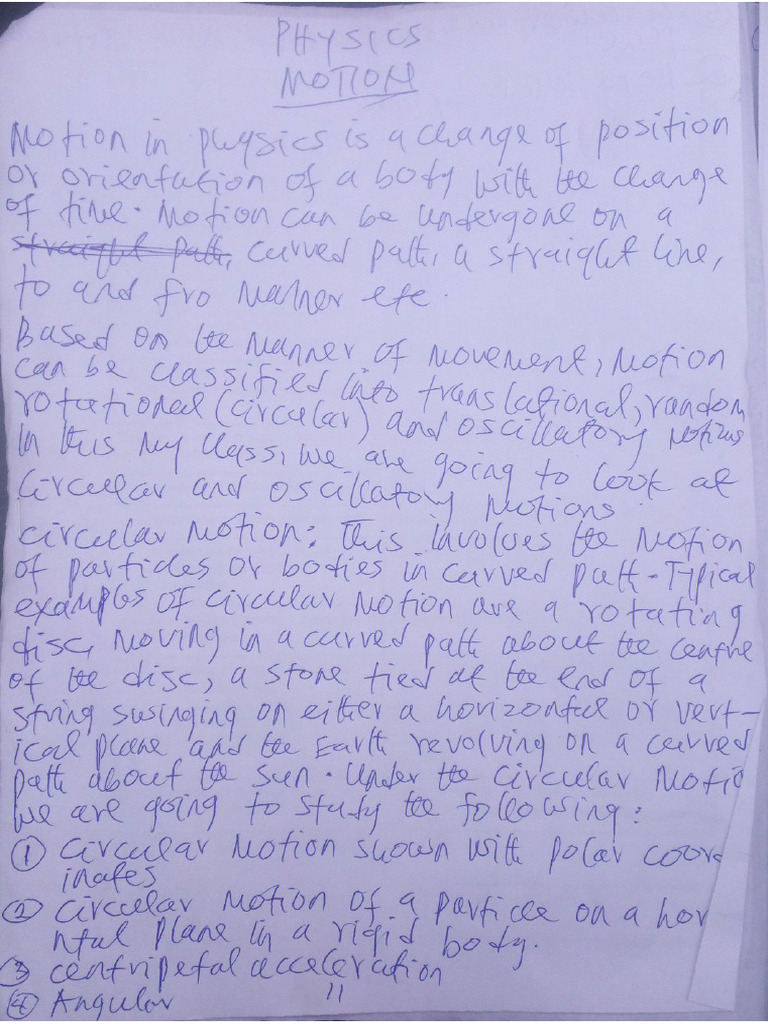 PHYSICS
MOTION
Motion in physics is a change of position
or orientation of a body with the change
of time. Motion can be undergone on a
straight path, curved path, a straight line,
to and fro manner etc.
Based on the manner of movement, motion
can be classified into translational, random
rotational (circular) and oscillatory motions
In this my class, we are going to look at
circular and oscillatory motions.
circular motion: This involves the motion
of particles or bodies in curved path. Typical
examples of circular motion are a rotating
disc, moving in a curved path about the centre
of the disc, a stone tied at the end of a
string swinging on either a horizontal or vert-
ical plane and the Earth revolving on a curved
path about the sun. Under the circular motio
we are going to study the following:
① circular motion shown with polar coor
inates
② circular motion of a particle on a hor
ntal plane in a rigid body.
③ centripetal acceleration
④ Angular "